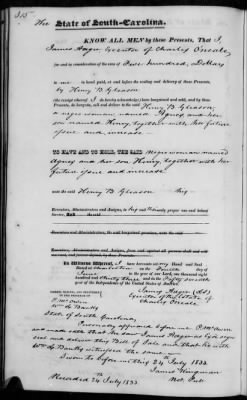 The State of South-Carolina.
KNOW ALL MEN by these Presents, That I,
James Executor of Charles
for and in consideration of the sum of Five hundred, Dollars
to me in hand paid, at and before the sealing and delivery of these Presents,
by Henry B. Gleason
(the receipt whereof I do hereby acknowledge) have bargained and sold, and by these
Presents, do bargain, sell and deliver to the said Henry B. Gleason,
a negro woman named Agnes and her
son named Henry, together with her future
issue and increase
TO HAVE AND TO HOLD, THE SAID Negro woman named
Agnes and her son Henry, together with her
future issue and increase
unto the said Henry B. Gleason his
Executors, Administrators and Assigns, to his and their only proper use and behoof
forever. And
Executors, Administrators and Assigns, the said bargained premises, unto the said
Executors, Administrators and Assigns, from and against all persons shall and will
warrant, and forever defend, by these Presents.
In Witness Whereof, I have hereunto set my Hand and Seal
Dated at Charleston on the day of
in the year of our Lord, one thousand eight
hundred and thirty three and in the fifty seventh
year of the Independence of the United States of America.
James (LS)
Executor of the Estate of
Charles
State of South Carolina,
Personally appeared before me
and made oath that he saw James
and deliver this Bill of Sale and that he with
witnessed the same
Sworn to before me this 24 July 1833
James
Not. Pub.
Recorded 24th July 1833.